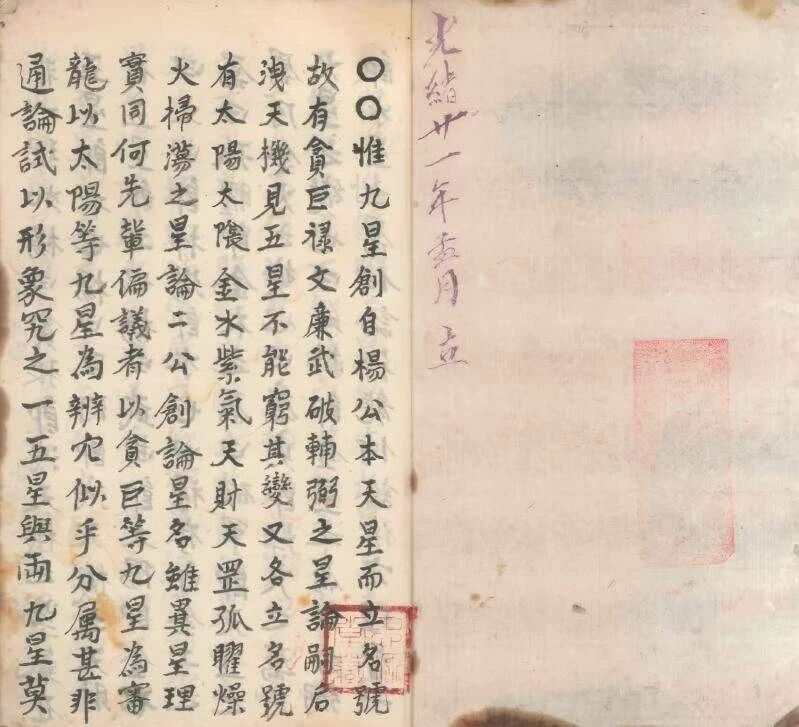 光緒廿一年月立
〇〇惟九星創自楊公本天星而立名號
故有貪巨禄文廉武破輔弼之星論嗣后
洩天機見五星不能窮其變又各立名號
有太陽太陰金水紫氣天財天罡孤曜燥
火掃蕩之星論二公創論星名雖異星理
實同何先輩偏議者以貪巨等九星為審
龍以太陽等九星為辨穴似乎分属甚非
通論試以形象究之一五星與兩九星莫